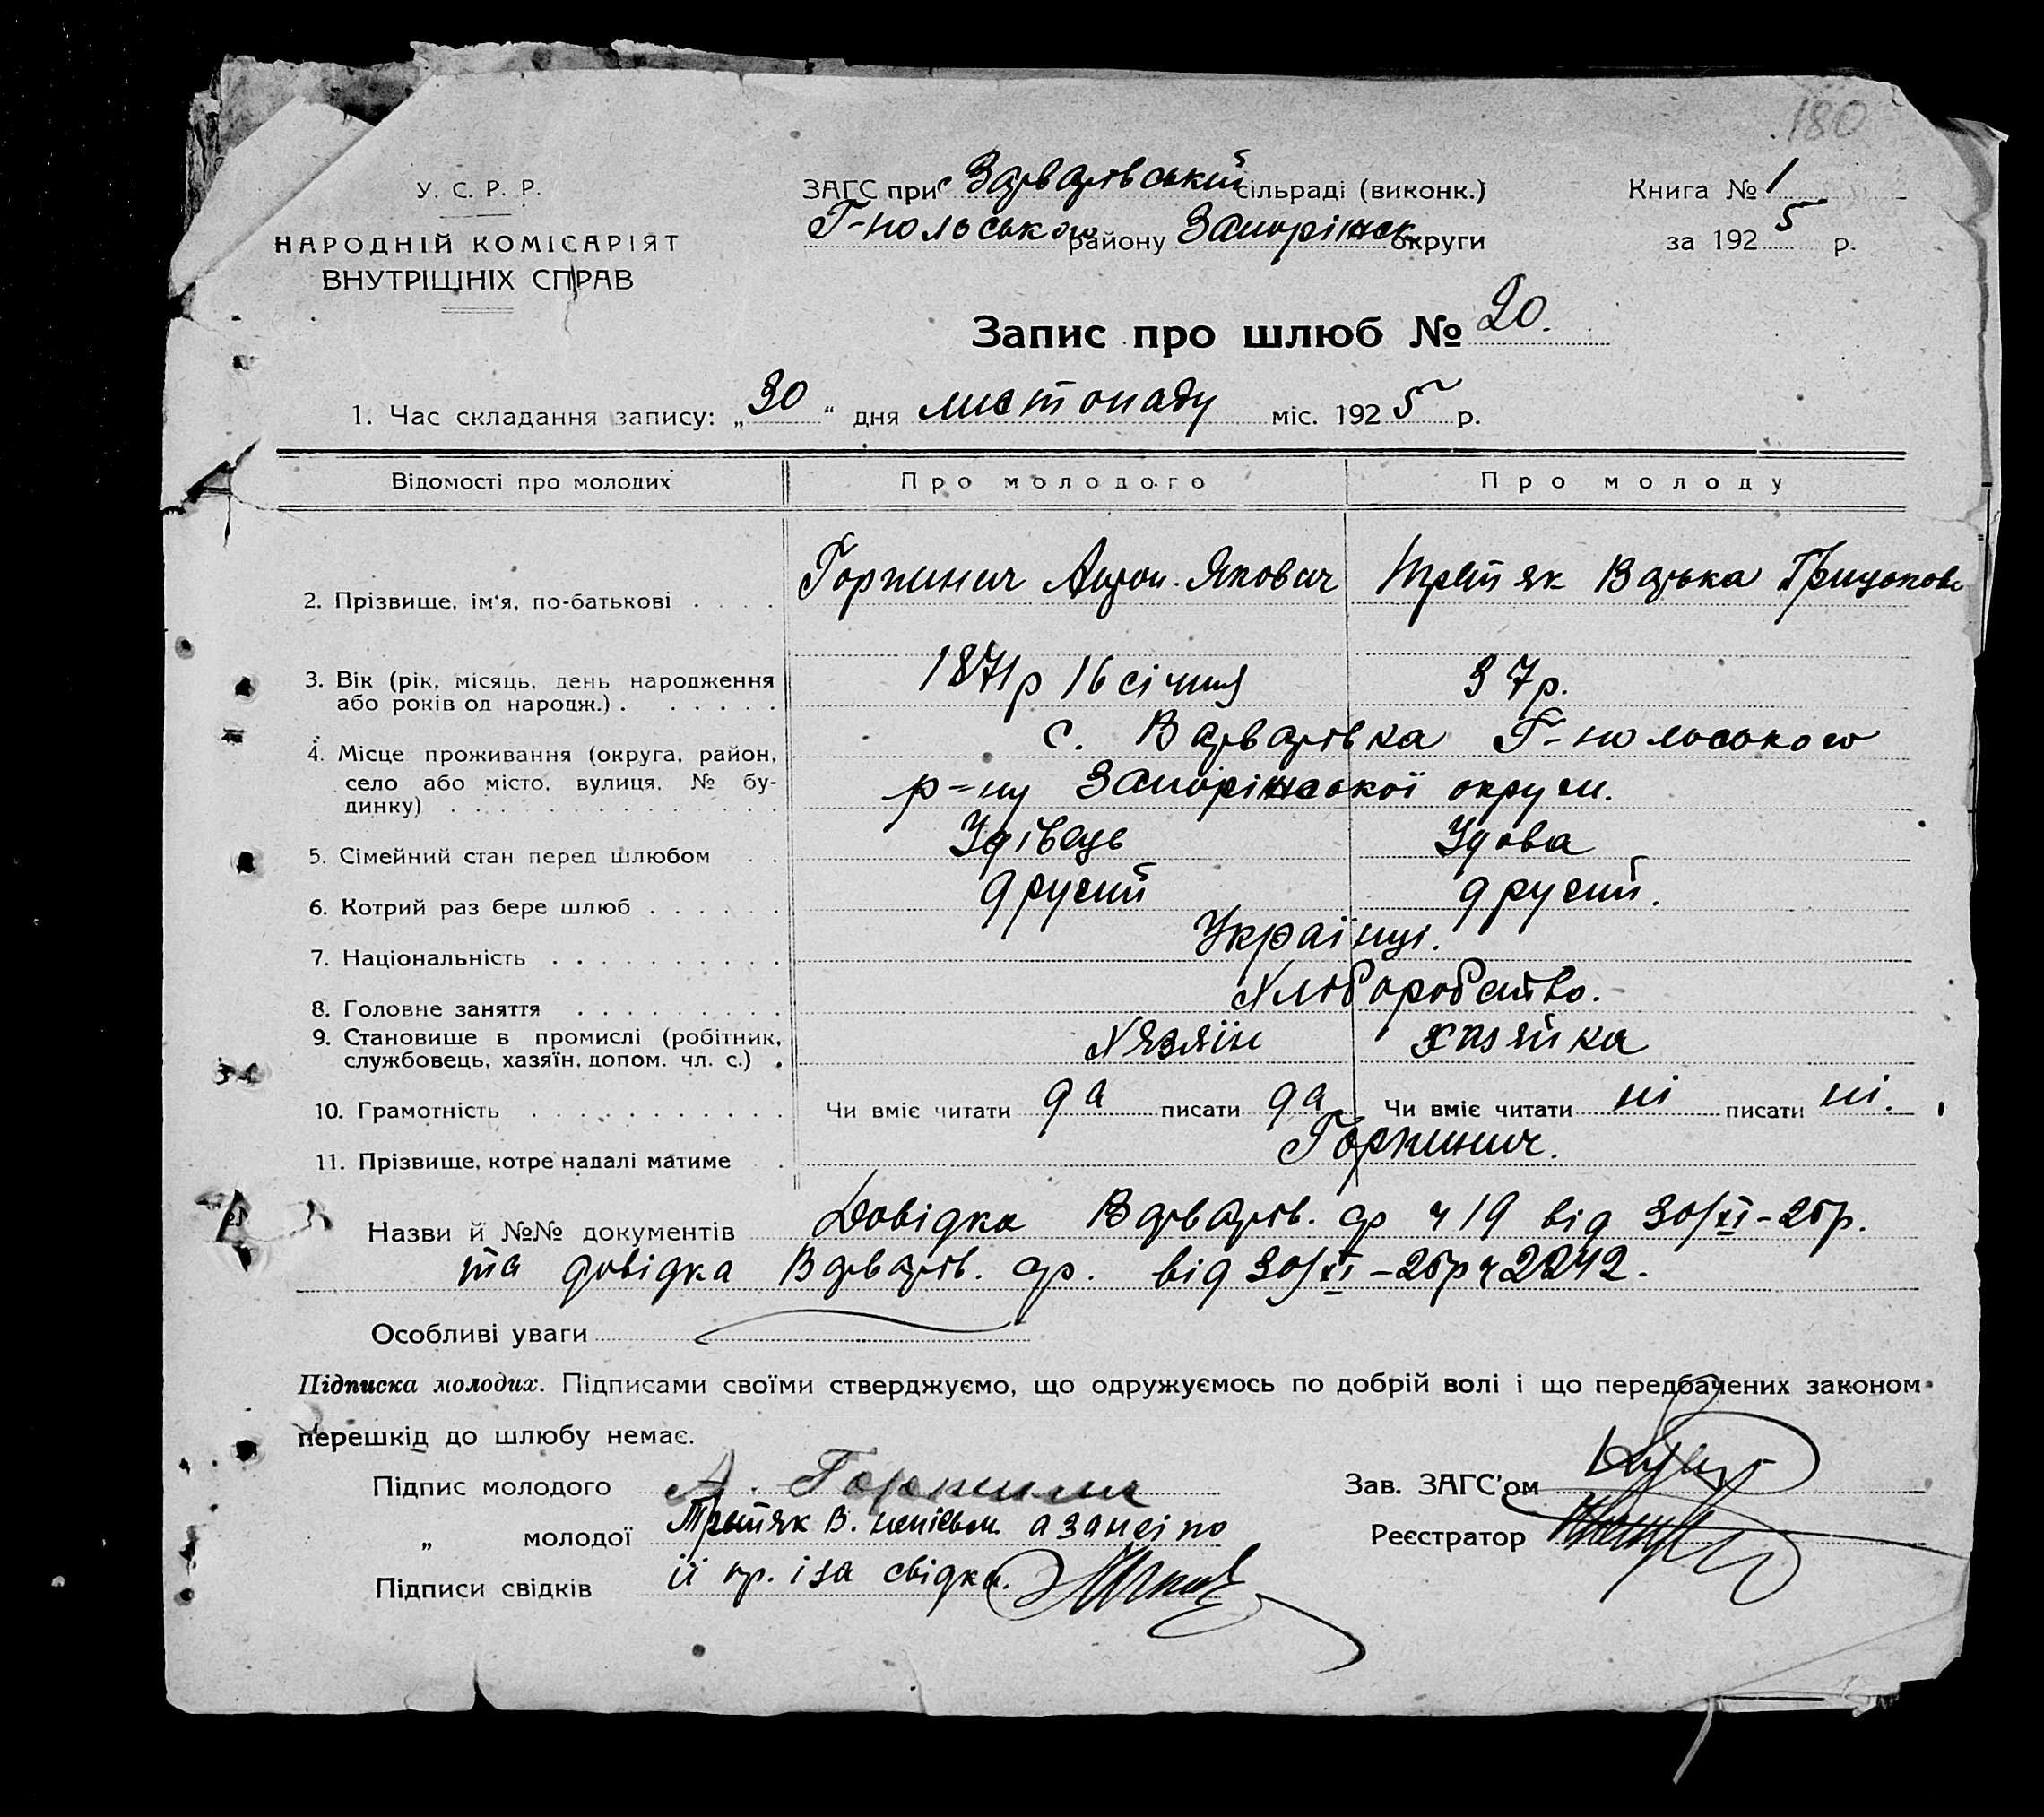 180
У. С. Р. Р.
НАРОДНІЙ КОМІСАРІЯТ
ВНУТРІШНІХ СПРАВ
ЗАГС при Варварівський сільраді (виконк.)
Г-польського району Запоріжськ округи
Книга № 1
за 1925 р.
Запис про шлюб № 20.
1. Час складання запису: „30“ дня листопаду міс. 1925 р.
Відомості про молодих Про молодого Про молоду
2. Прізвище, ім'я, по-батькові . . . . Горпинич Антон Якович Третяк Варька Грицьков
3. Вік (рік, місяць, день народження 1871р 16 січня 37р.
або років од народж.) . . . . . .
4. Місце проживання (округа, район, с. Варварівка Г-польського
село або місто, вулиця, № бу- р-ну Запоріжської округи.
динку) . . . . . . . . . . . .
5. Сімейний стан перед шлюбом . . Удівець Удова
6. Котрий раз бере шлюб . . . . . . другий другий.
7. Національність . . . . . . . . . . Українці.
8. Головне заняття . . . . . . . . . Хліборобство.
9. Становище в промислі (робітник, Хязяїн хазяйка
службовець, хазяїн, допом. чл. с.) .
10. Грамотність . . . . . . . . . . . Чи вміє читати да писати да Чи вміє читати ні писати ні.
11. Прізвище, котре надалі матиме . Горпинич.
Назви й №№ документів Довідка Варварів. ср ч 19 від 30/XI-25р.
та довідка Варварів. ср. від 30/XI-25р ч 2242.
Особливі уваги
Підписка молодих. Підписами своїми стверджуємо, що одружуємось по добрій волі і що передбачених законом
перешкід до шлюбу немає.
Підпис молодого А. Горпинич
„ молодої Третяк В. неписьм. а за неї по
Підписи свідків її пр. і за свідка.
Зав. ЗАГС'ом
Реєстратор